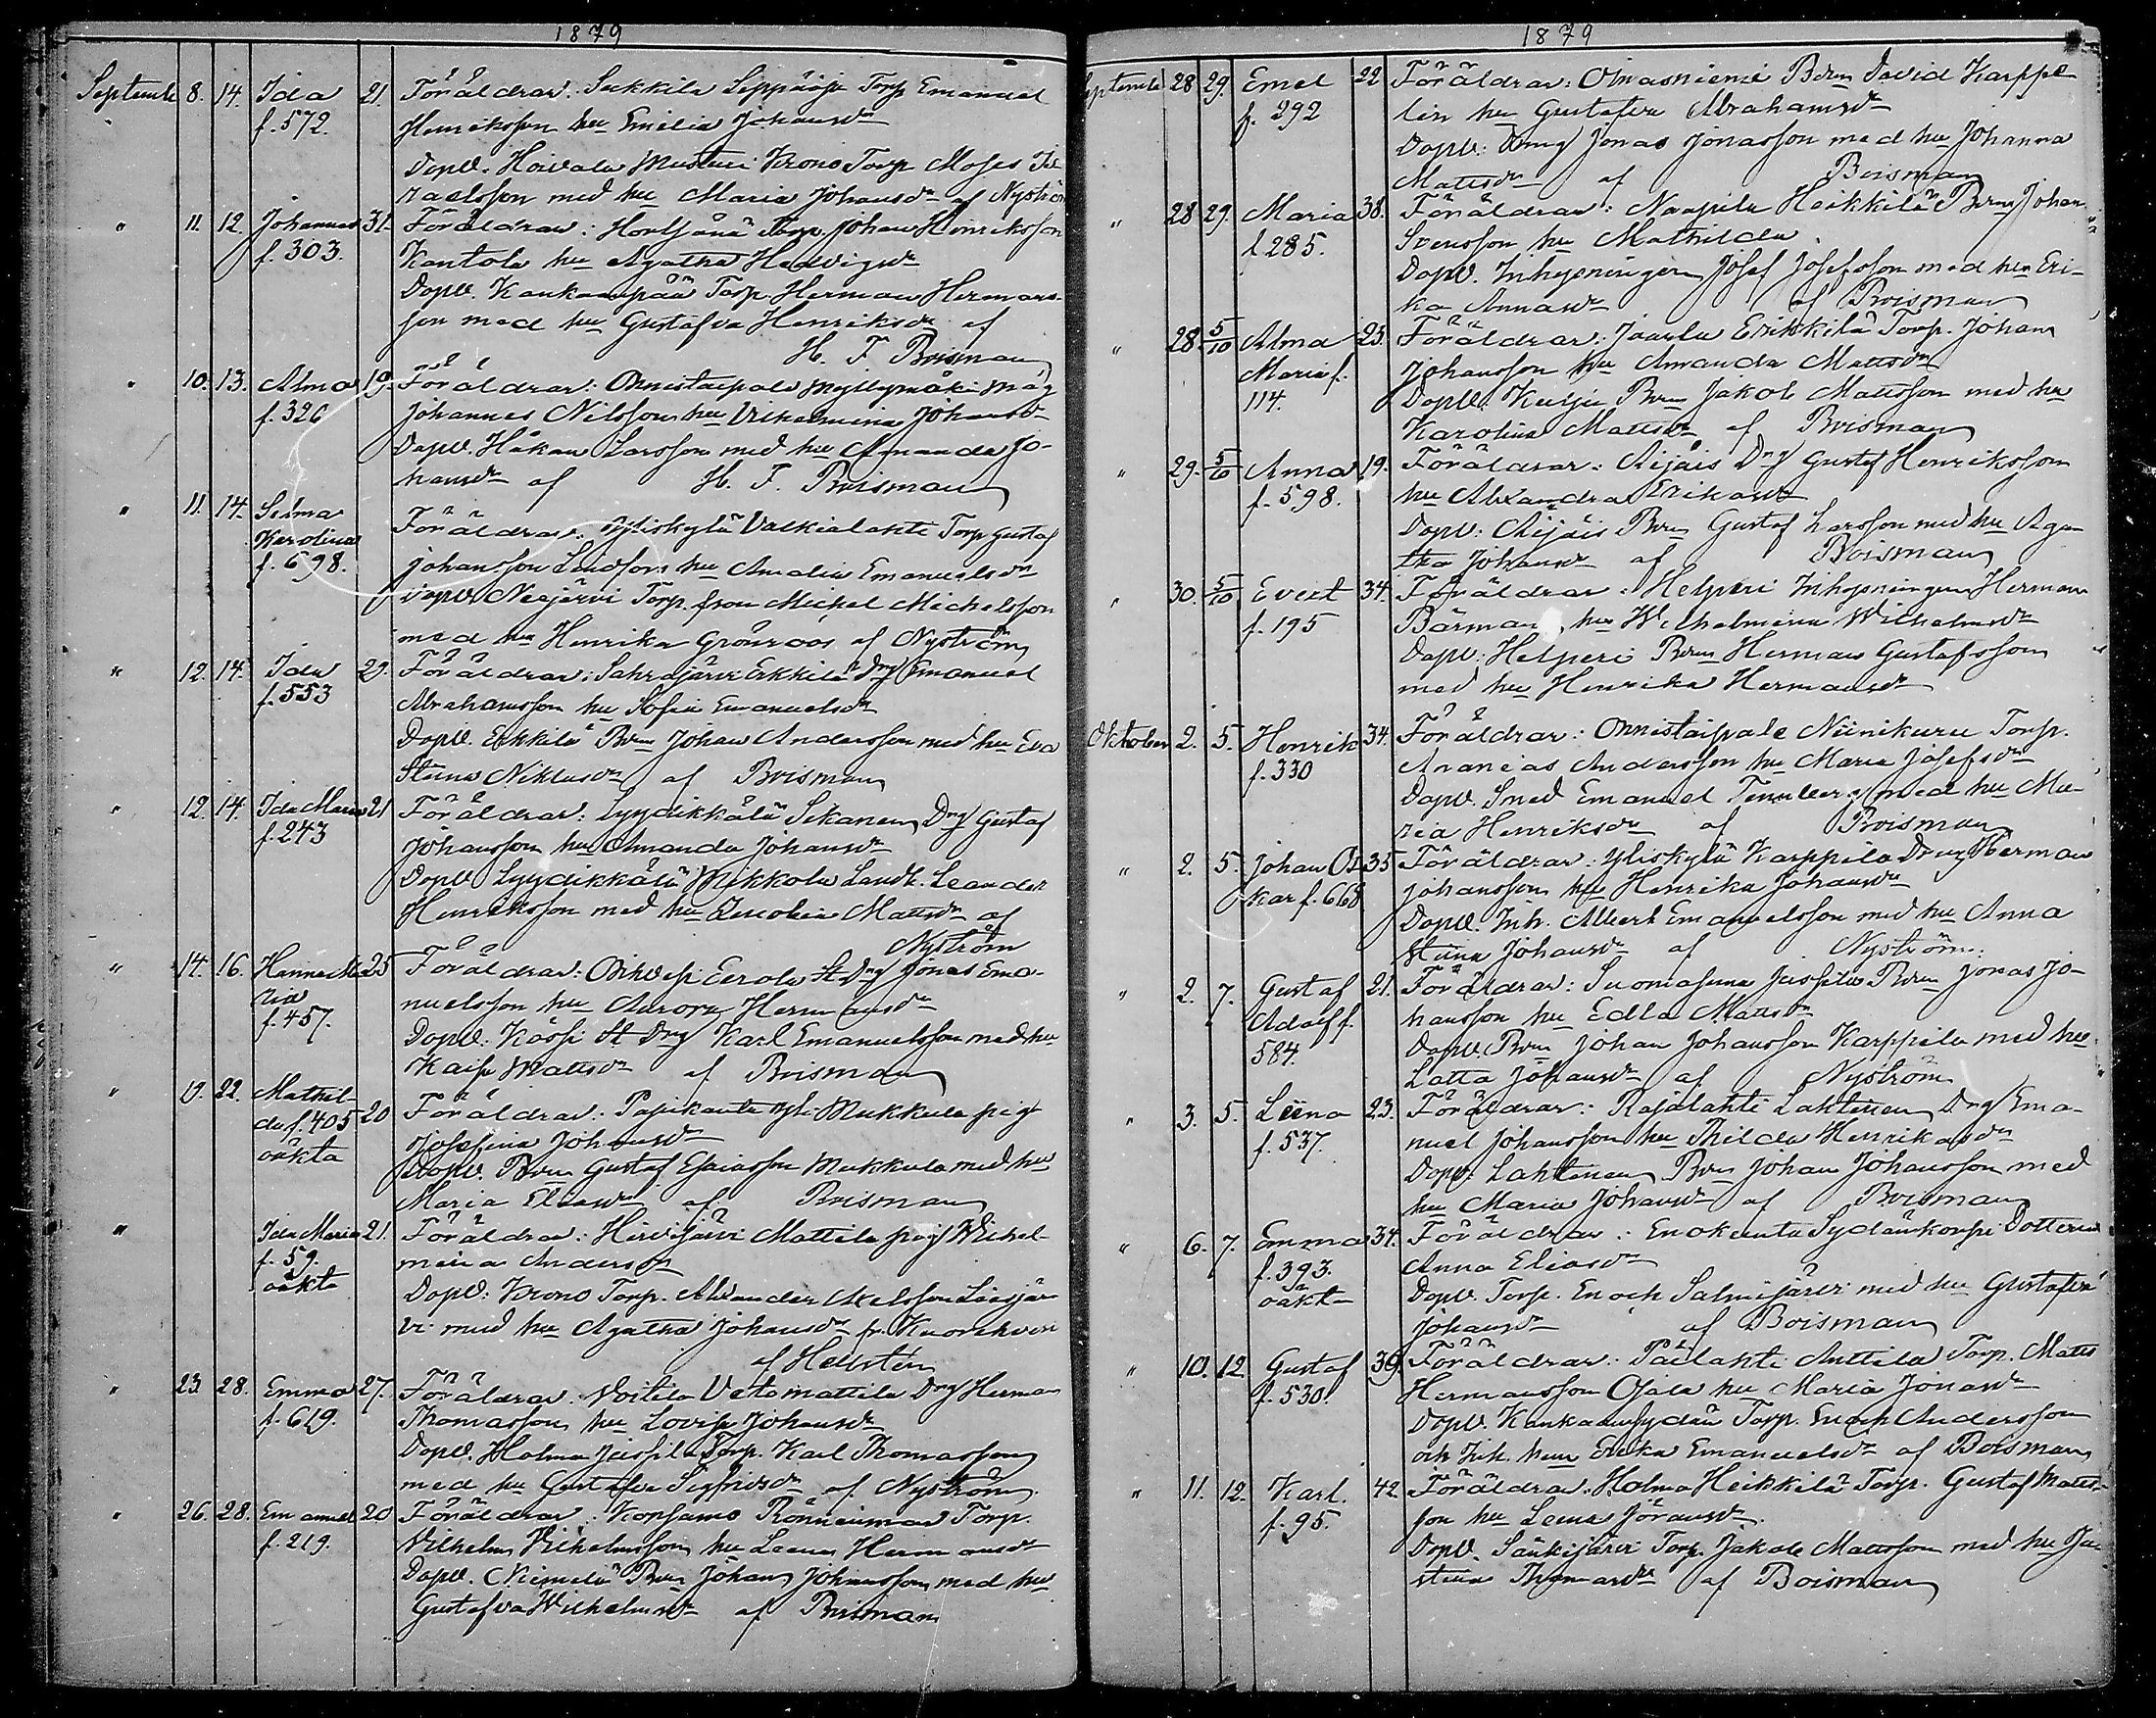 1879
Septembr 8. 14. Ida 21. Föräldrar: Sukkila Torp Emanuel
f. 572. Henriksson hu Emilia Johansdr
Dopv. Howala Krono Torp Moses Is-
raelsson med hu Maria Johansdr af Nyström
" 11. 12. Johannes 31. Föräldrar: Torp. Johan Henriksson
f. 303. Kantola hu Agatha Hedvigsdr
Dopv. Kankaanpää Torp. Herman Hermans-
son med hu Gustafva Henriksdr af
H. F. Boisman
" 10. 13. Alma 19. Föräldrar: Onnistaipale Myllymäki måg
f. 326 Johannes Nilsson hu Vilhelmina Johansdr
Dopv. Håkan Larsson med hu Amanda Jo-
hansdr af H. F. Boisman
" 11. 14. Selma Föräldrar: Yliskylä Valkialahti Torp Gustaf
Karolina
f. 698. Johansson Lindfors hu Amalia Emanuelsdr
Dopv. Neejärvi Torp. son Mickel Michelsson
med hu Henrika Grönroos af Nyström
" 12. 14. Ida 29. Föräldrar: Sahrajärvi Erkkilä Drg Emanuel
f. 553 Abrahamsson hu Sofia Emanuelsdr
Dopv. Erkkilä Bon Johan Andersson med hu Eva
Stina Niklasdr af Boisman
" 12. 14. Ida Maria 21 Föräldrar: Lyydikkälä Sikanen Drg Gustaf
f. 243 Johansson hu Amanda Johansdr
Dopv. Lyydikkälä Mikkola Landb. Leander
Henriksson med hu Mattsdr af
Nyström
" 14. 16. Hanna Ma- 25 Föräldrar: Eerola St Drg Jonas Ema-
ria
f. 457. nuelsson hu Aurora Hermansdr
Dopv. Kössi St Drg Karl Emanuelsson med hu
Kaisa Mattsdr af Boisman
" 22. Mathil- Föräldrar: Mukkula pig
da f. 405 20
oäkta Josefina Johansdr
Dopv. Bon Gustaf Esaiasson Mukkula med hu
Maria Eliasdr af Boisman
" Ida Maria 21. Föräldrar: Hirvijärvi Mattila pig Wilhel-
f. 59. mina Andersdr
oäkta Dopv: Krono Torp. Alexander Axelsson Liesjär-
vi med hu Agatha Johansdr fr.
af Hellsten
" 23. 28. Emma 27. Föräldrar: Voitila Drg Herman
f. 619. Thomasson hu Lovisa Johansdr
Dopv. Holma Jussila Torp. Karl Thomasson
med hu Gustafva Sigfridsdr af Nyström
" 26. 28. Emanuel 20 Föräldrar: Kopsamo Rönninmaa Torp.
f. 219. Vilhelm Vilhelmsson hu Leena Hermansdr
Dopv. Niemelä Bon Johan Johansson med hu
Gustafva Wilhelmsdr af Boisman
1879
Septembr 28 29. Emel 22 Föräldrar: Oinasniemi Bon David Karppe-
f. 292 lin hu Gustafva Abrahamsdr
Dopv: Drng Jonas Jonasson med hu Johanna
Mattsdr af Boisman
" 28 29. Maria 38. Föräldrar: Naapila Heikkilä Bon Johan
f. 285. Svensson hu Mathilda
Dopv. Inhysningen Josef Josefsson med hu Eri-
ka Annasdr af Boisman
" 28. 5/10 Alma 23. Föräldrar: Jaarla Erikkilä Torp. Johan
Maria f. Johansson hu Amanda Mattsdr
114. Dopv. Bon Jakob Mattsson med hu
Karolina Mattsdr af Boisman
" 29. 5/10 Anna 19. Föräldrar: Äijäis Drg Gustaf Henriksson
f. 598. hu Alexandra Eriksdr
Dopv: Äijäis Bon Gustaf Larsson med hu Aga-
tha Johansdr af Boisman
" 30. 5/10 Evert 34. Föräldrar: Helperi Inhysningen Herman
f. 195 Bärman, hu Wilhelmina Wilhelmsdr
Dopv: Helperi Bon Herman Gustafsson
med hu Henrika Hermansdr
Oktober 2. 5. Henrik 34. Föräldrar: Onnistaipale Niinikuru Torp.
f. 330 Ananias Andersson hu Maria Josefsdr
Dopv. Smed Emanuel med hu Ma-
ria Henriksdr af Boisman
" 2. 5. Johan Os- 35 Föräldrar: Yliskylä Karppila Drng Herman
kar f. 668 Johansson hu Henrika Johansdr
Dopv. Inh. Albert Emanuelsson med hu Anna
Stina Johansdr af Nyström
" 2. 7. Gustaf 21. Föräldrar: Jussila Bon Jonas Jo-
Adolf f. hansson hu Edla Mattsdr
584. Dopv. Bon Johan Johansson Karppila med hu
Lotta Johansdr af Nyström
" 3. 5. Liina 23. Föräldrar: Rajalahti Lahtinen Drg Ema-
f. 537. nuel Johansson hu Thilda Henriksdr
Dopv: Lahtinen Bon Johan Johansson med
hu Maria Johansdr af Boisman
" 6. 7. Emma 34. Föräldrar: Sydänkorpi Dottern
f. 393. Anna Eliasdr
oäkta Dopv. Torp. Enoch Salmijärvi med hu Gustafva
Johansdr af Boisman
" 10. 12 Gustaf 39 Föräldrar: Päilahti Anttila Torp. Matts
f. 530. Hermansson Ojala hu Maria Jonasdr
Dopv. Torp. Enoch Andersson
och Inh. hun Erika Emanuelsdr af Boisman
" 11. 12. Karl. 42. Föräldrar: Holma Heikkilä Torp. Gustaf Matts-
f. 95. son hu Lena Göransdr.
Dopv. Särkijärvi Torp. Jakob Mattsson med hu Ju-
stina Thomasdr af Boisman